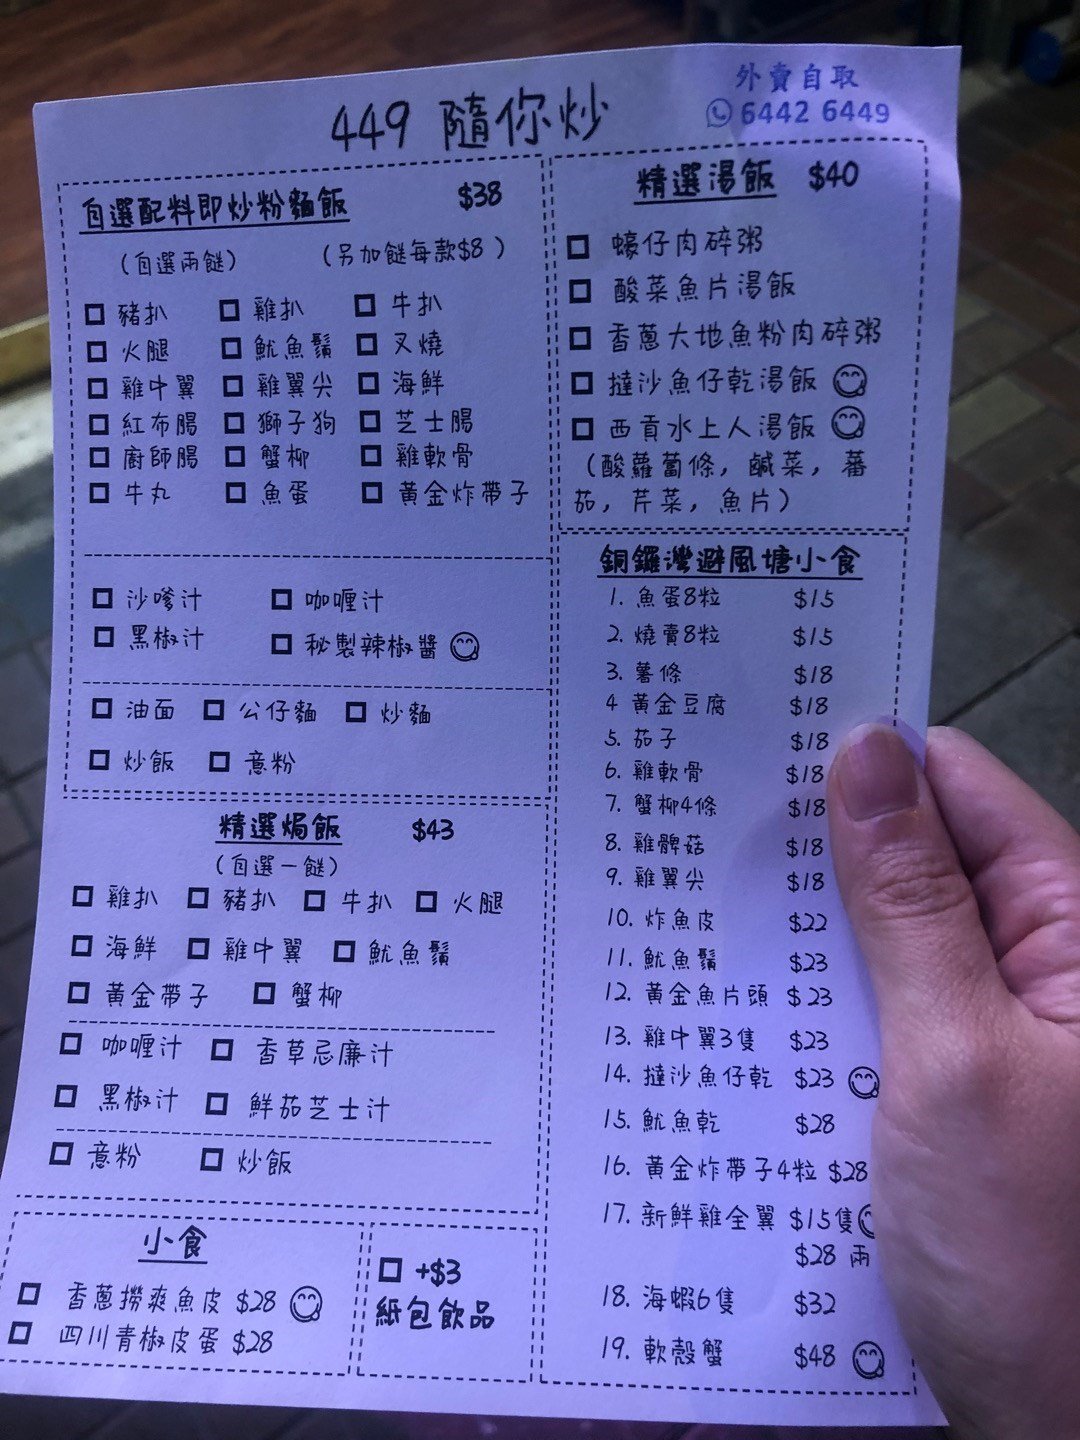 449 隨你炒
外賣自取
6442 6449
自選配料即炒粉麵飯 $38
(自選兩餸) (另加餸每款$8)
豬扒 雞扒 牛扒
火腿 魷魚鬚 叉燒
雞中翼 雞翼尖 海鮮
紅布腸 獅子狗 芝士腸
廚師腸 蟹柳 雞軟骨
牛丸 魚蛋 黃金炸帶子
沙嗲汁 咖喱汁
黑椒汁 秘製辣椒醬
油面 公仔麵 炒麵
炒飯 意粉
精選焗飯 $43
(自選一餸)
雞扒 豬扒 牛扒 火腿
海鮮 雞中翼 魷魚鬚
黃金帶子 蟹柳
咖喱汁 香草忌廉汁
黑椒汁 鮮茄芝士汁
意粉 炒飯
小食
香蔥撈爽魚皮 $28
四川青椒皮蛋 $28
+$3
紙包飲品
精選湯飯 $40
蠔仔肉碎粥
酸菜魚片湯飯
香蔥大地魚粉肉碎粥
撻沙魚仔乾湯飯
西貢水上人湯飯
(酸蘿蔔條, 鹹菜, 蕃
茄, 芹菜, 魚片)
銅鑼灣避風塘小食
1. 魚蛋8粒 $15
2. 燒賣8粒 $15
3. 薯條 $18
4 黃金豆腐 $18
5. 茄子 $18
6. 雞軟骨 $18
7. 蟹柳4條 $18
8. 雞髀菇 $18
9. 雞翼尖 $18
10. 炸魚皮 $22
11. 魷魚鬚 $23
12. 黃金魚片頭 $23
13. 雞中翼3隻 $23
14. 撻沙魚仔乾 $23
15. 魷魚乾 $28
16. 黃金炸帶子4粒 $28
17. 新鮮雞全翼 $15隻
$28 兩
18. 海蝦6隻 $32
19. 軟殼蟹 $48